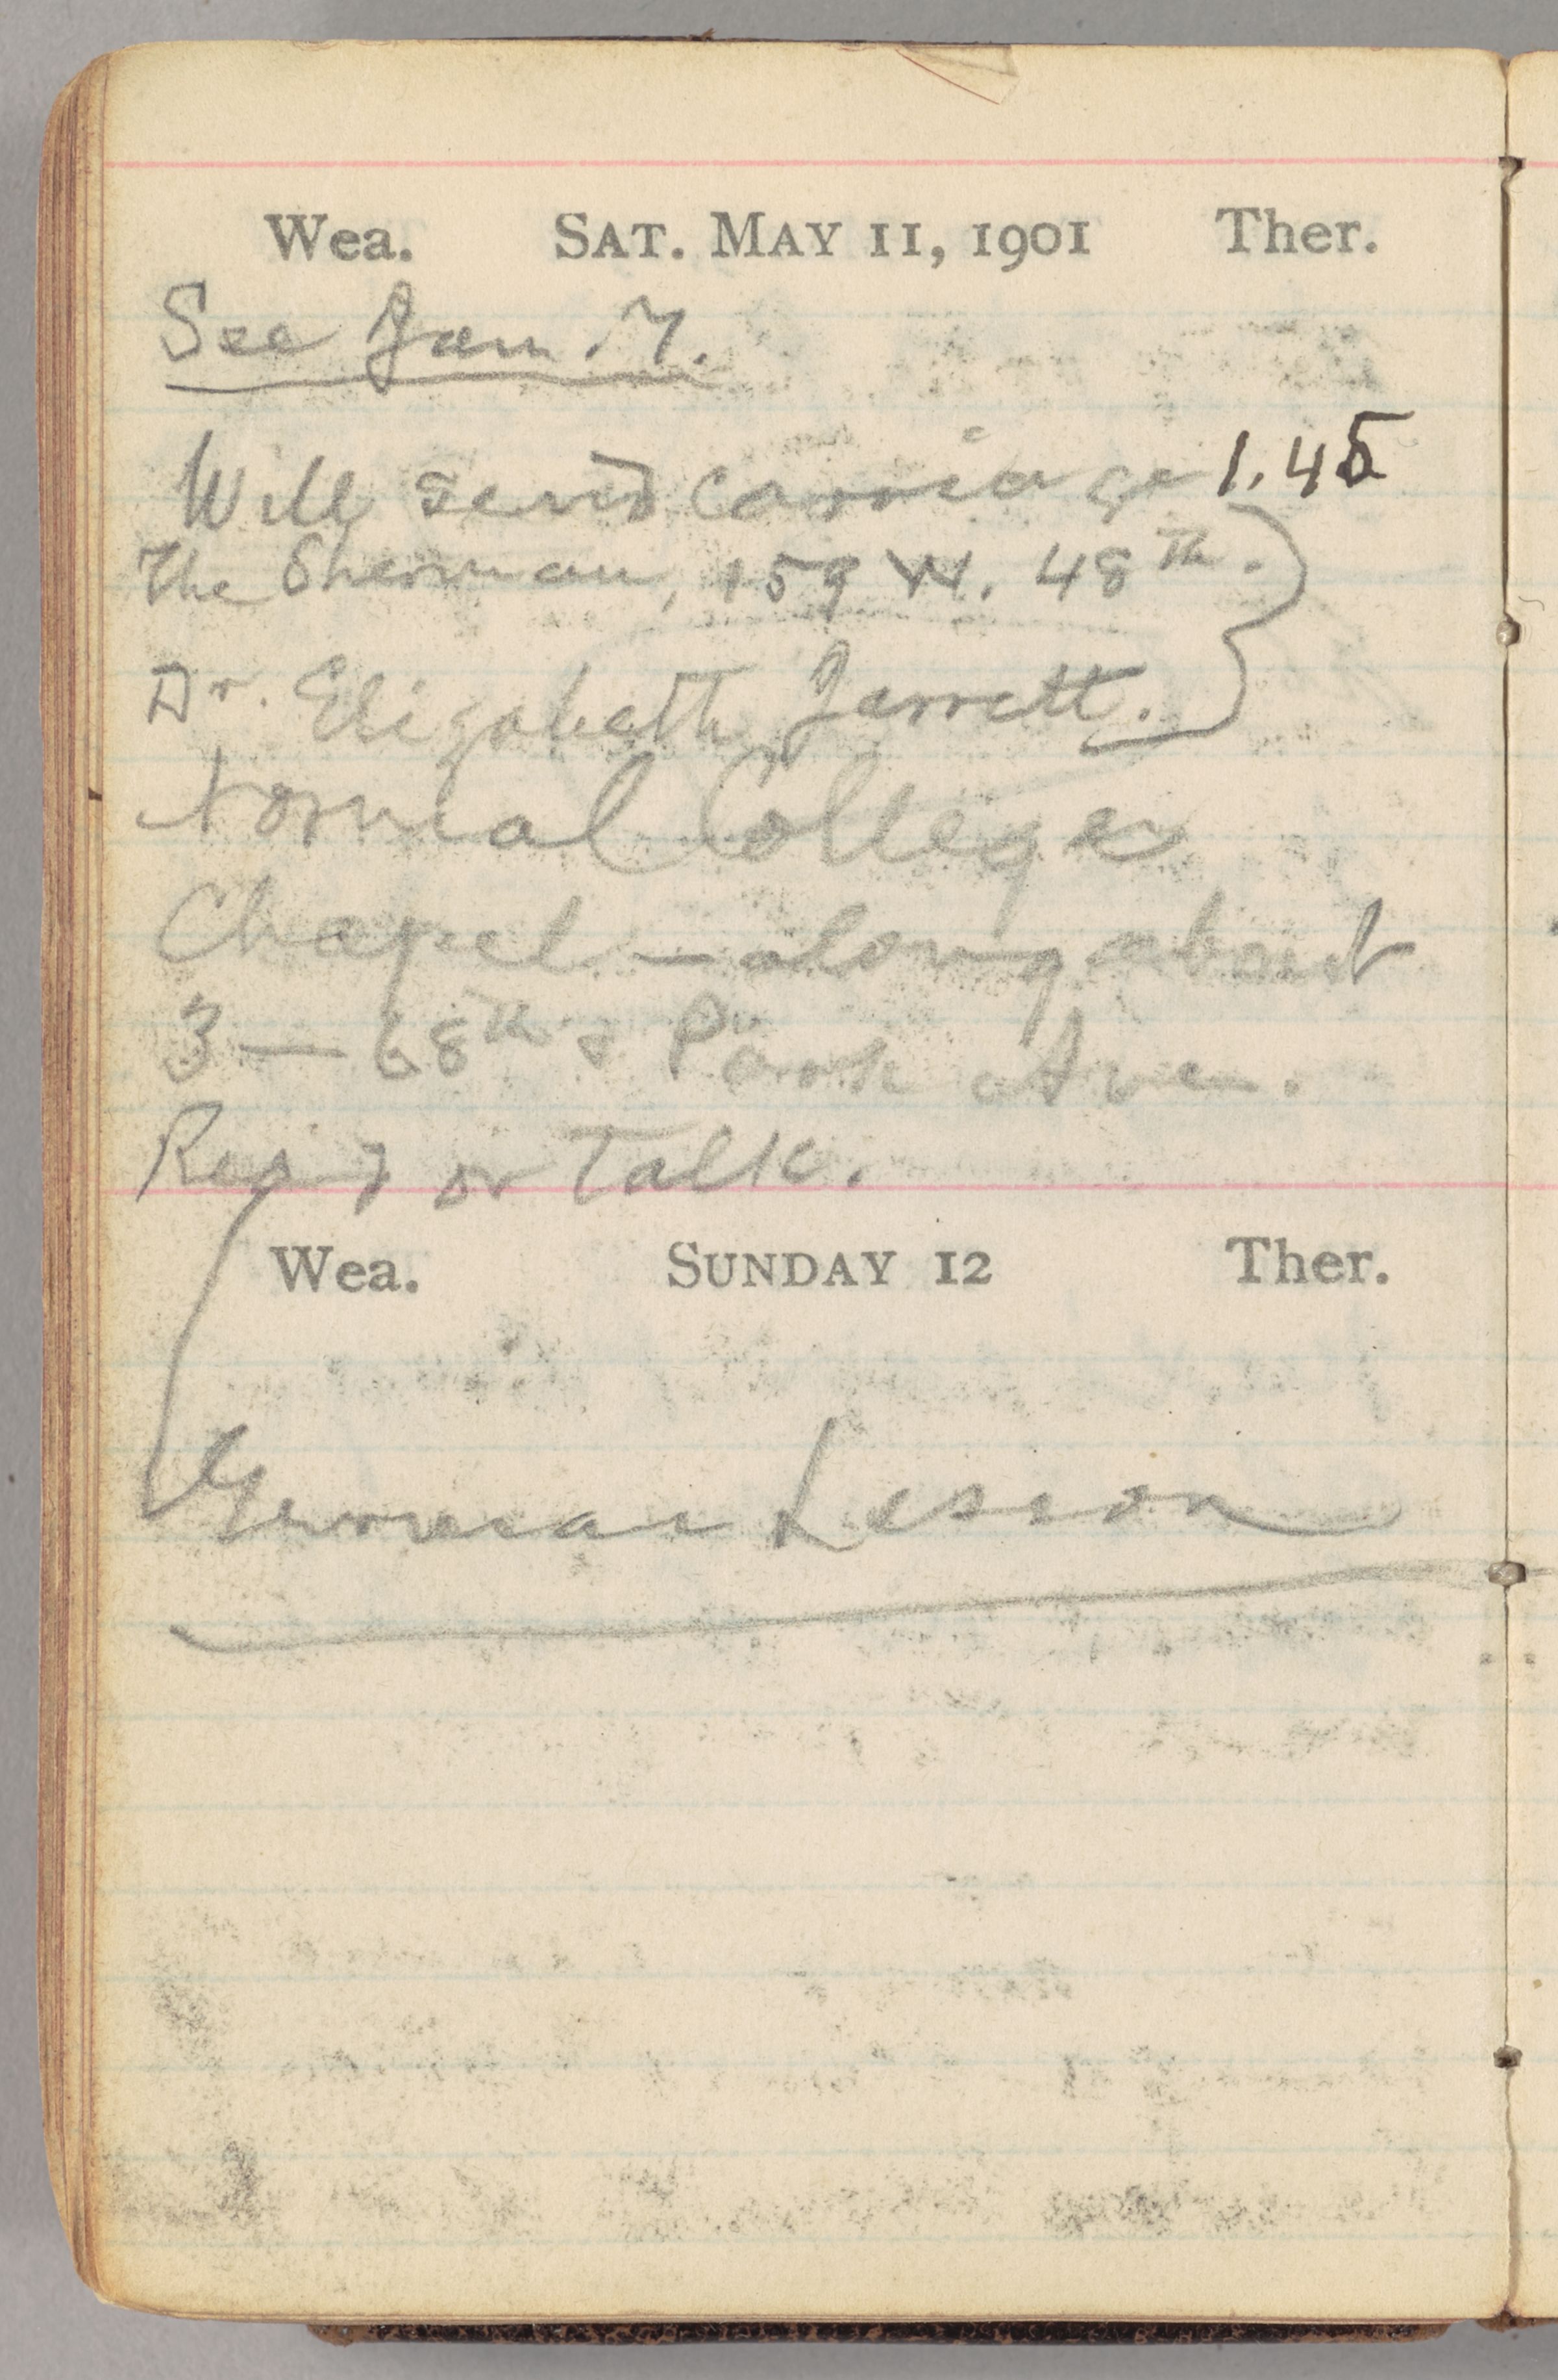 Wea. SAT. MAY 11, 1901 Ther.
See Jan. 7.
Will send carriage 1.45
The Sherman, 159 W. 48th.
Dr. Elizabeth Jarrett.
Normal College
Chapel — along about
3 — 68th & Park Ave.
Read or Talk.
Wea. SUNDAY 12 Ther.
German Lesson